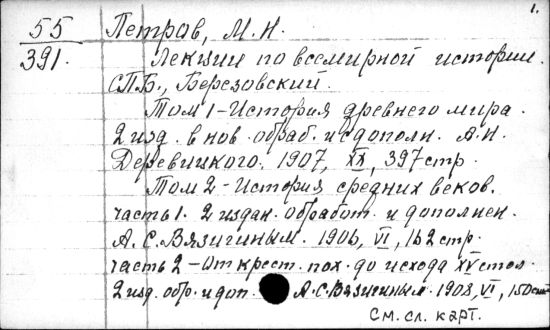 1.
55
391.
Петров, М.Н.
Лекции по всемирной истории.
СПБ., Березовский.
Том 1 - История древнего мира.
2 изд. в нов. обраб. и с дополн. А.Н.
Деревицкого. 1907, XX, 397 стр.
Том 2 - История средних веков.
часть 1. 2 издан. обработ. и дополнен.
А.С. Вязигиным. 1906, VI, 162 стр.
часть 2 - От крест. пох. до исхода XV стол.
2 изд. обр. и доп. А.С. Вязигиным. 1908, VI, 150 стр.
См. сл. карт.